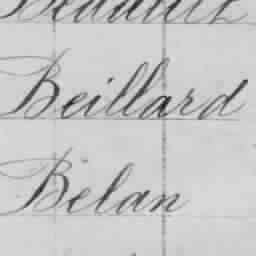 Beillard
Belan